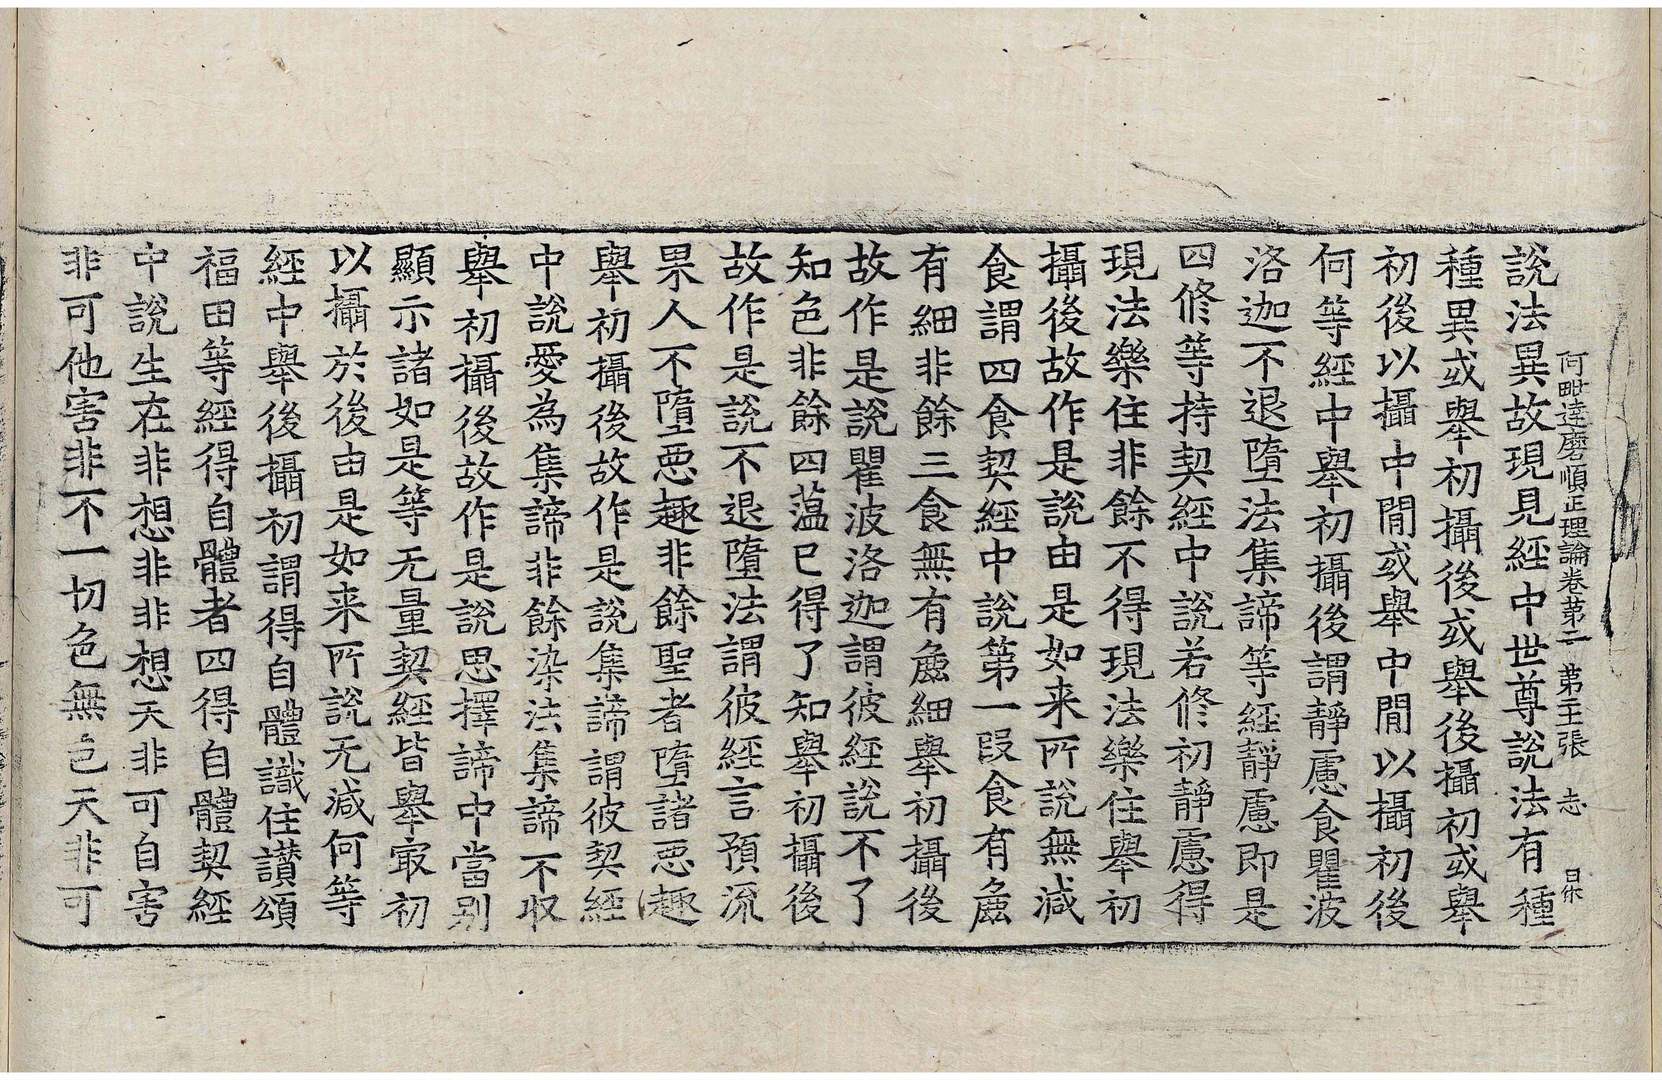 阿毗達磨順正理論卷第二　第三張　志
說法異故現見經中世尊說法有種
種異或舉初攝後或舉後攝初或舉
初後以攝中閒或舉中閒以攝初後
何等經中舉初攝後謂靜慮食瞿波
洛迦不退墮法集諦等經靜慮即是
四修等持契經中說若修初靜慮得
現法樂住非餘不得現法樂住舉初
攝後故作是說由是如来所說無減
食謂四食契經中說第一段食有麁
有細非餘三食無有麁細舉初攝後
故作是說瞿波洛迦謂彼經說不了
知色非餘四蕰已得了知舉初攝後
故作是說不退墮法謂彼經言預流
果人不墮惡趣非餘聖者墮諸惡趣
舉初攝後故作是說集諦謂彼契經
中說愛為集諦非餘染法集諦不收
舉初攝後故作是說思擇諦中當別
顯示諸如是等无量契經皆舉冣初
以攝於後由是如来所說无減何等
經中舉後攝初謂得自體識住讃頌
福田等經得自體者四得自體契經
中說生在非想非非想天非可自害
非可他害非不一切色無色天非可